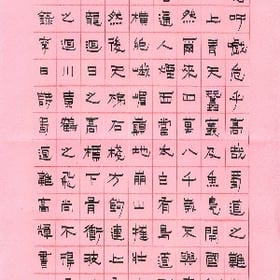 吁戲危乎高哉蜀道之難
上青天蠶叢及魚鳧開國
然爾來四萬八千歲不與
通人煙西當太白有鳥道
橫絕峨嵋巔地崩山摧壯
然後天梯石棧方鉤連上
龍迴日之高標下有衝波
之迴川黃鶴之飛尚不
李白詩蜀道難